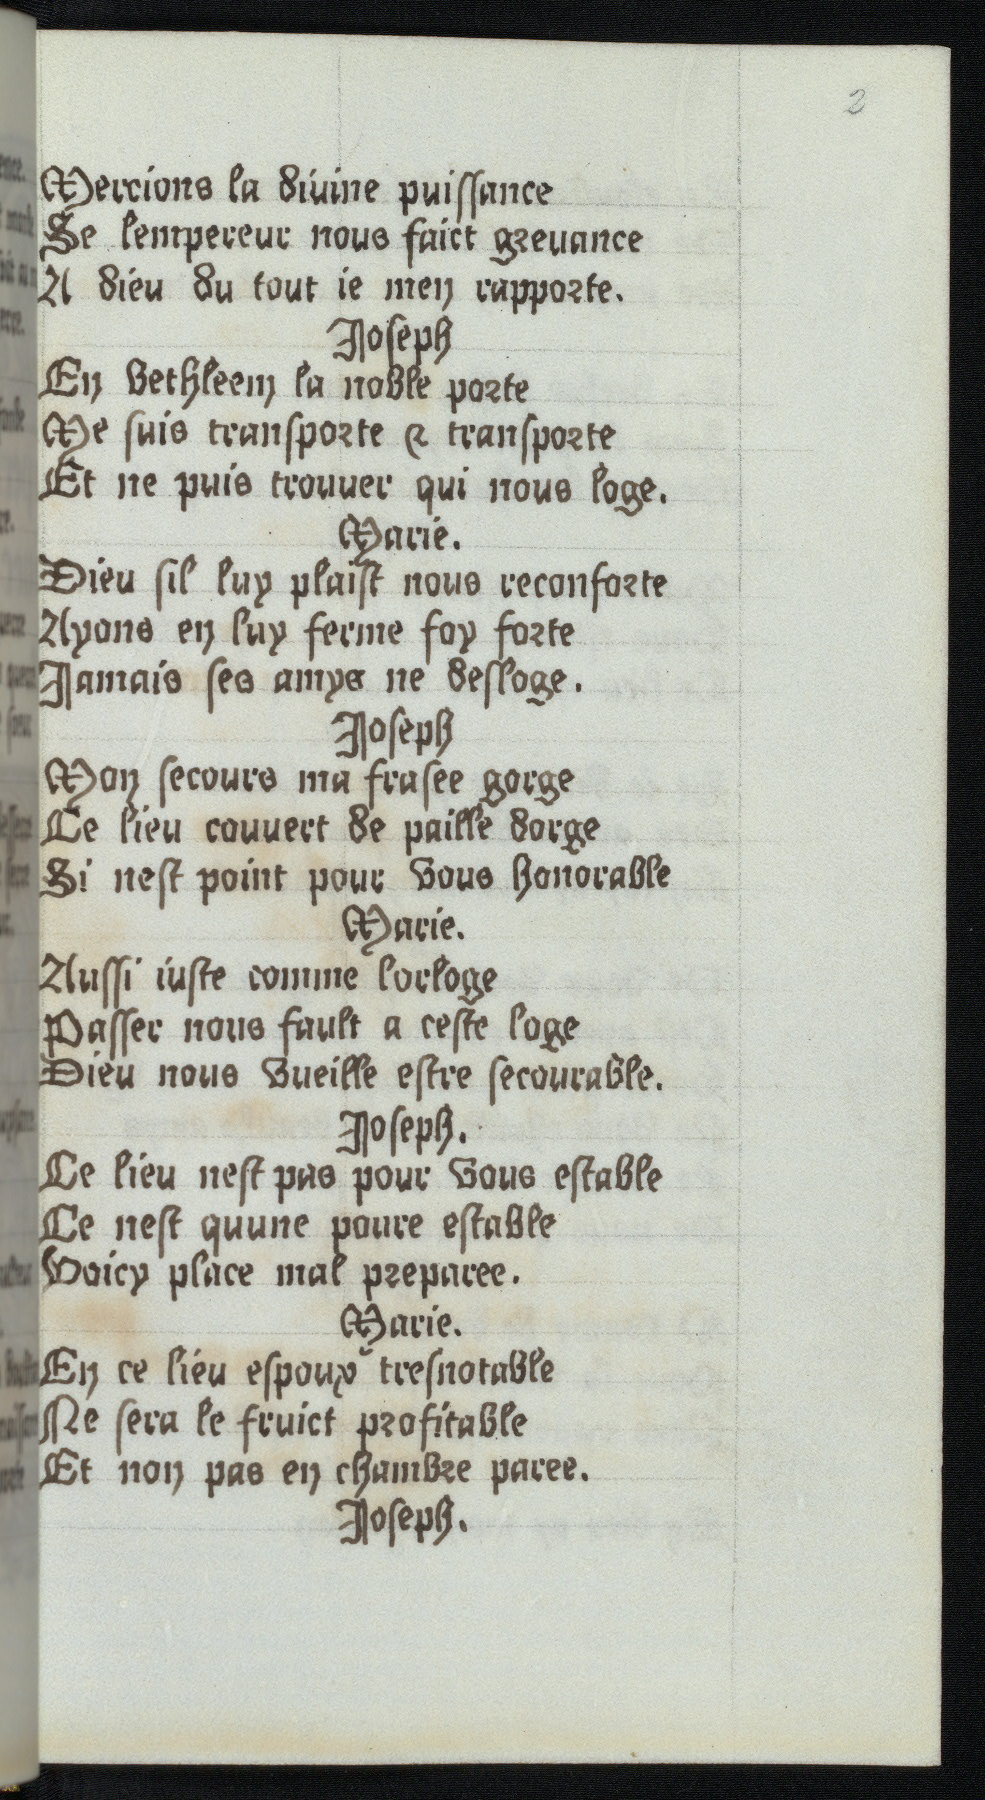 2
Mercions la diuine puissance
Se lempereur nous faict greuance
A dieu du tout ie men rapporte.
Joseph
En bethleem la noble porte
Me suis transporte & transporte
Et ne puis trouuer qui nous loge.
Marie.
Dieu sil luy plaist nous reconforte
Ayons en luy ferme foy forte
Jamais ses amys ne desloge.
Joseph
Mon secours ma frasee gorge
Le lieu couuert de paille dorge
Si nest point pour vous honorable
Marie.
Aussi iuste comme lorloge
Passer nous fault a ceste loge
Dieu nous vueille estre secourable.
Joseph.
Le lieu nest pas pour vous estable
Ce nest quune poure estable
Voicy place mal preparee.
Marie.
En ce lieu espoux tresnotable
Ne sera le fruict profitable
Et non pas en chambre paree.
Joseph.